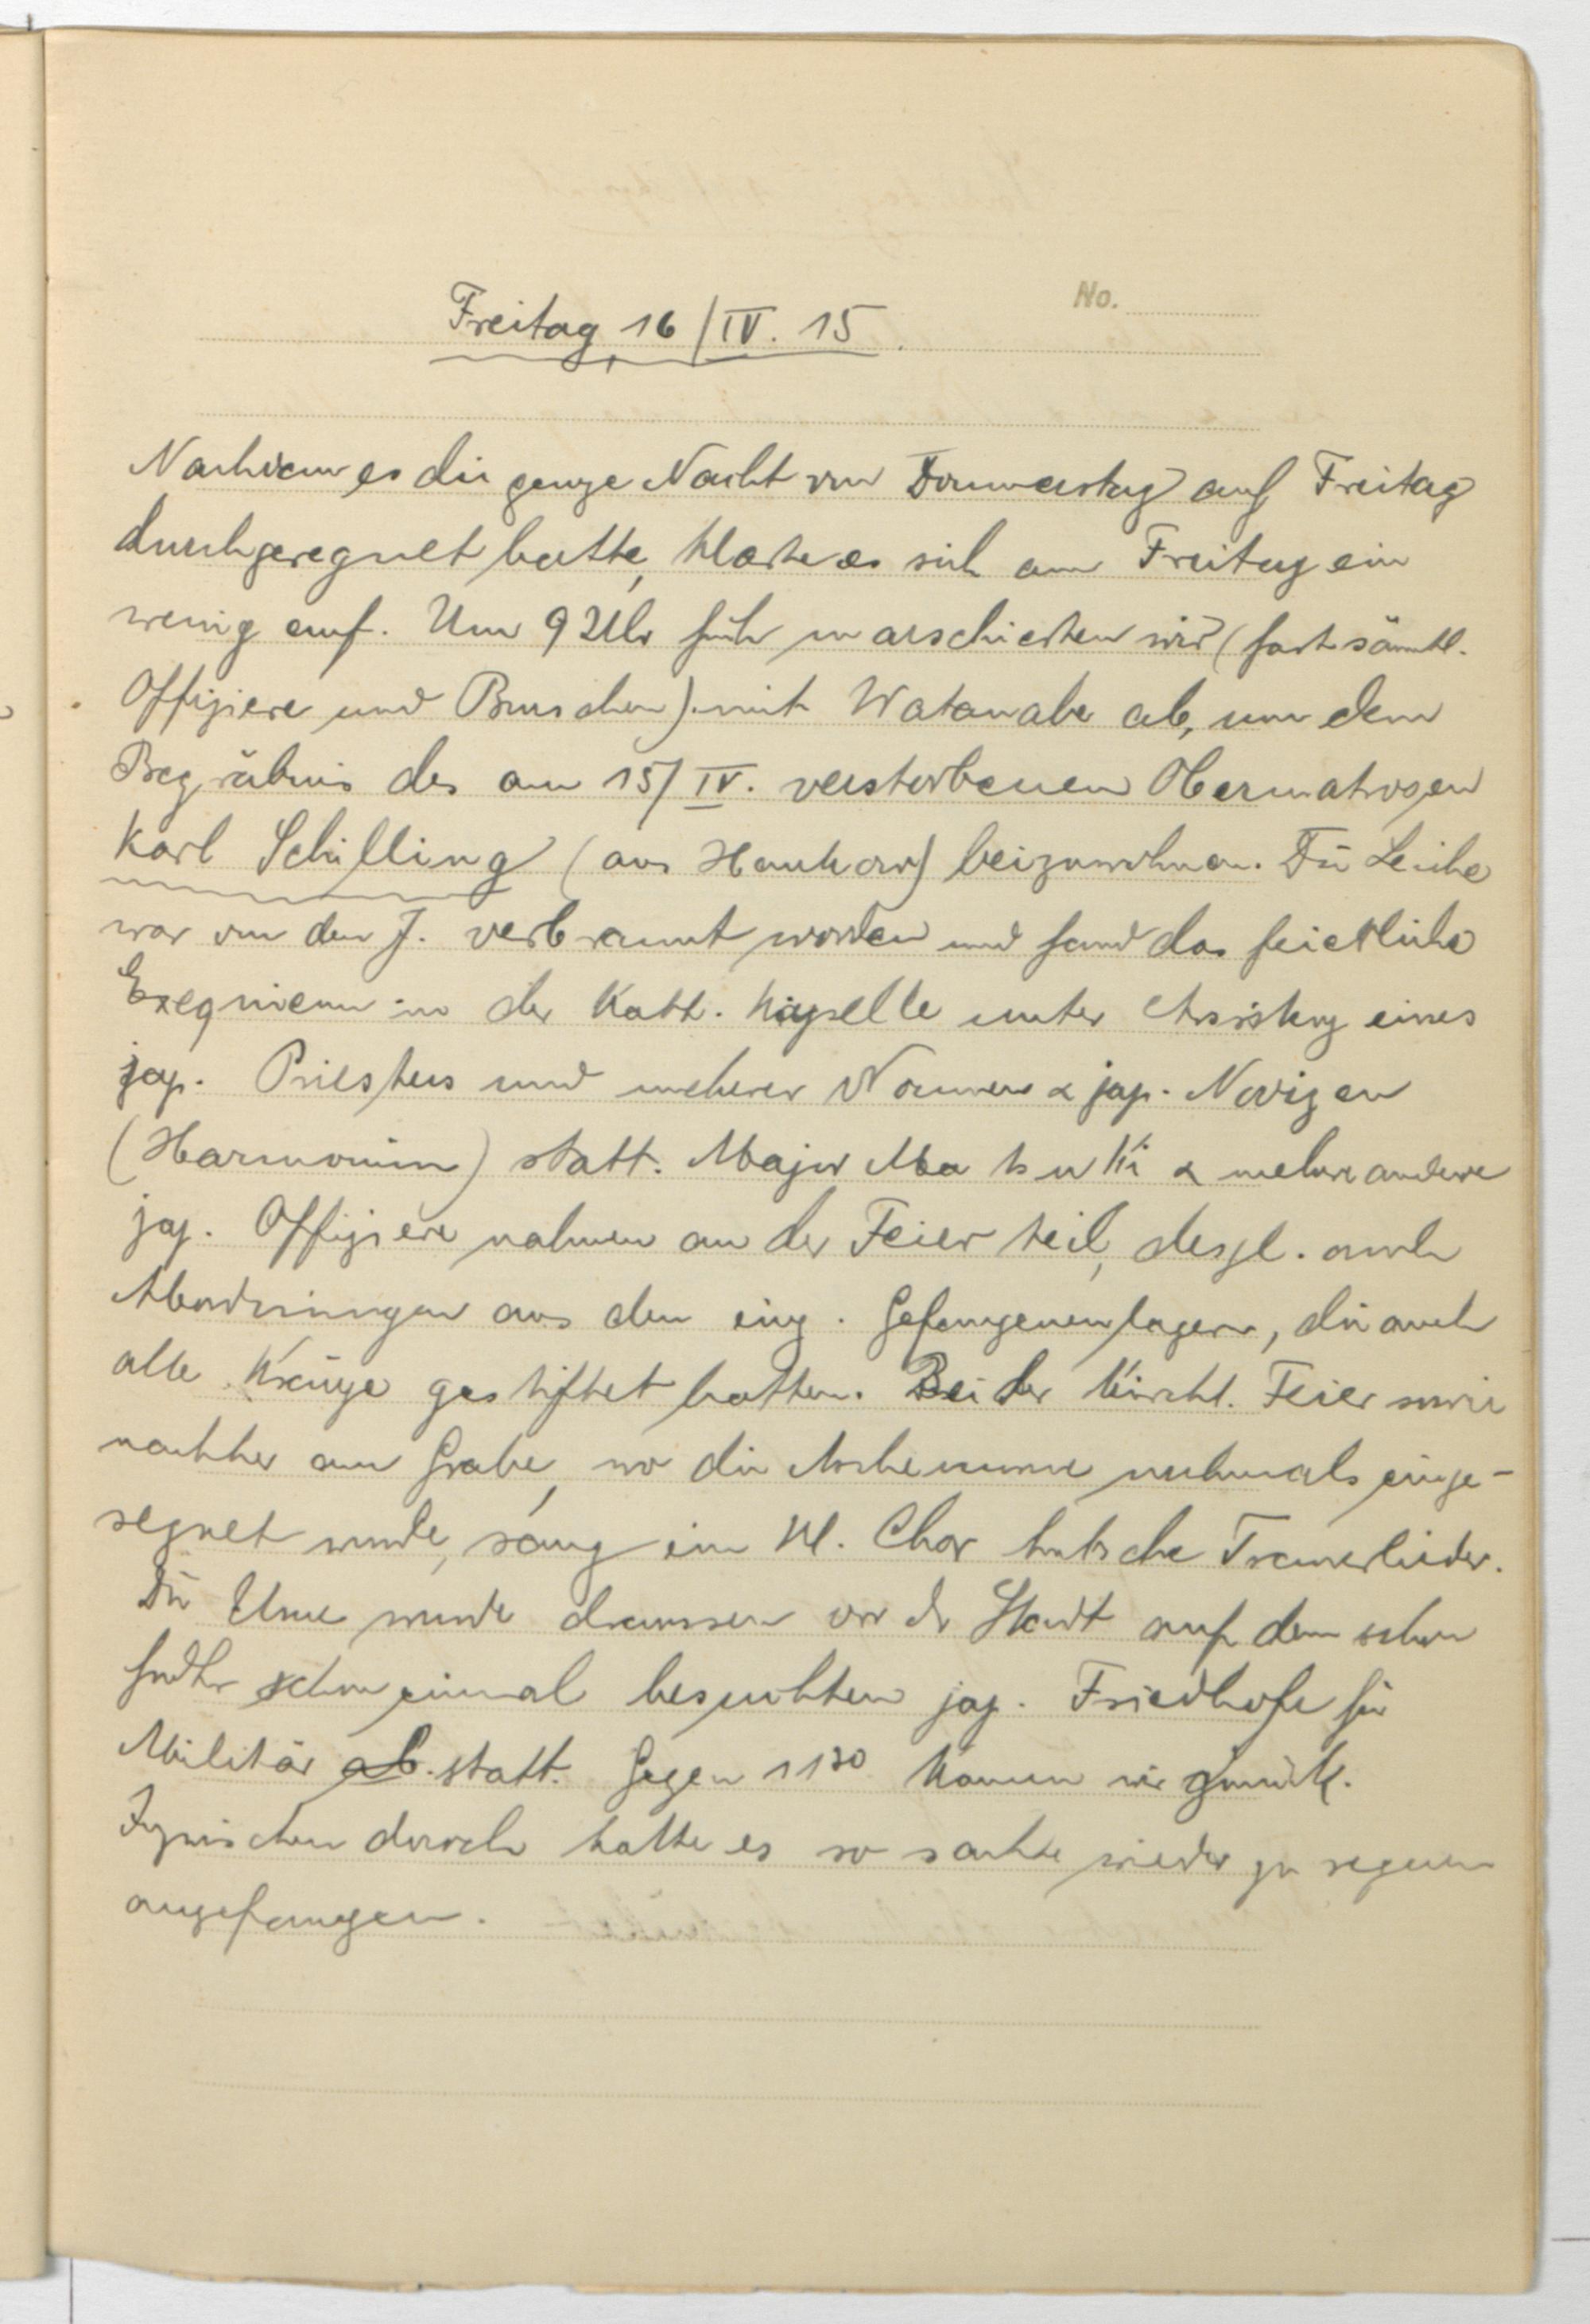 No.
Freitag 16/IV. 15.
Nachdem es die ganze Nacht von Donnerstag auf Freitag
durchgeregnet hatte, klarte es sich am Freitag ein
wenig auf. Um 9 Uhr früh marschierten wir (fast sämtl.
Offiziere und Burschen) mit Watanabe ab, um dem
Begräbnis des am 15/IV. verstorbenen Obermatrosen
Karl Schilling (aus Hankow) beizuwohnen. Die Leiche
war von den J. verbrannt worden und fand das feierliche
Exequieum in der Kath. Kapelle unter Assistenz eines
jap. Priesters und mehrer Nonnen & jap. Novizen
(Harmonium) statt. Major Matsuki & mehrere andere
jap. Offiziere nahmen an der Feier teil, desgl. auch
Abordnungen aus den einz. Gefangenenlagern, die auch
alle Kränze gestiftet hatten. Bei der kirchl. Feier sowie
nachher am Grabe, wo die Aschenurne nochmals einge-
segnet wurde, sang ein kl. Chor deutsche Trauerlieder.
Die Urne wurde draussen vor der Stadt auf dem schon
früher schon einmal besuchten jap. Friedhofe für
Militär ab. statt. Gegen 11³⁰ kamen wir zurück.
Inzwischen durch hatte es so sachte wieder zu regnen
angefangen.